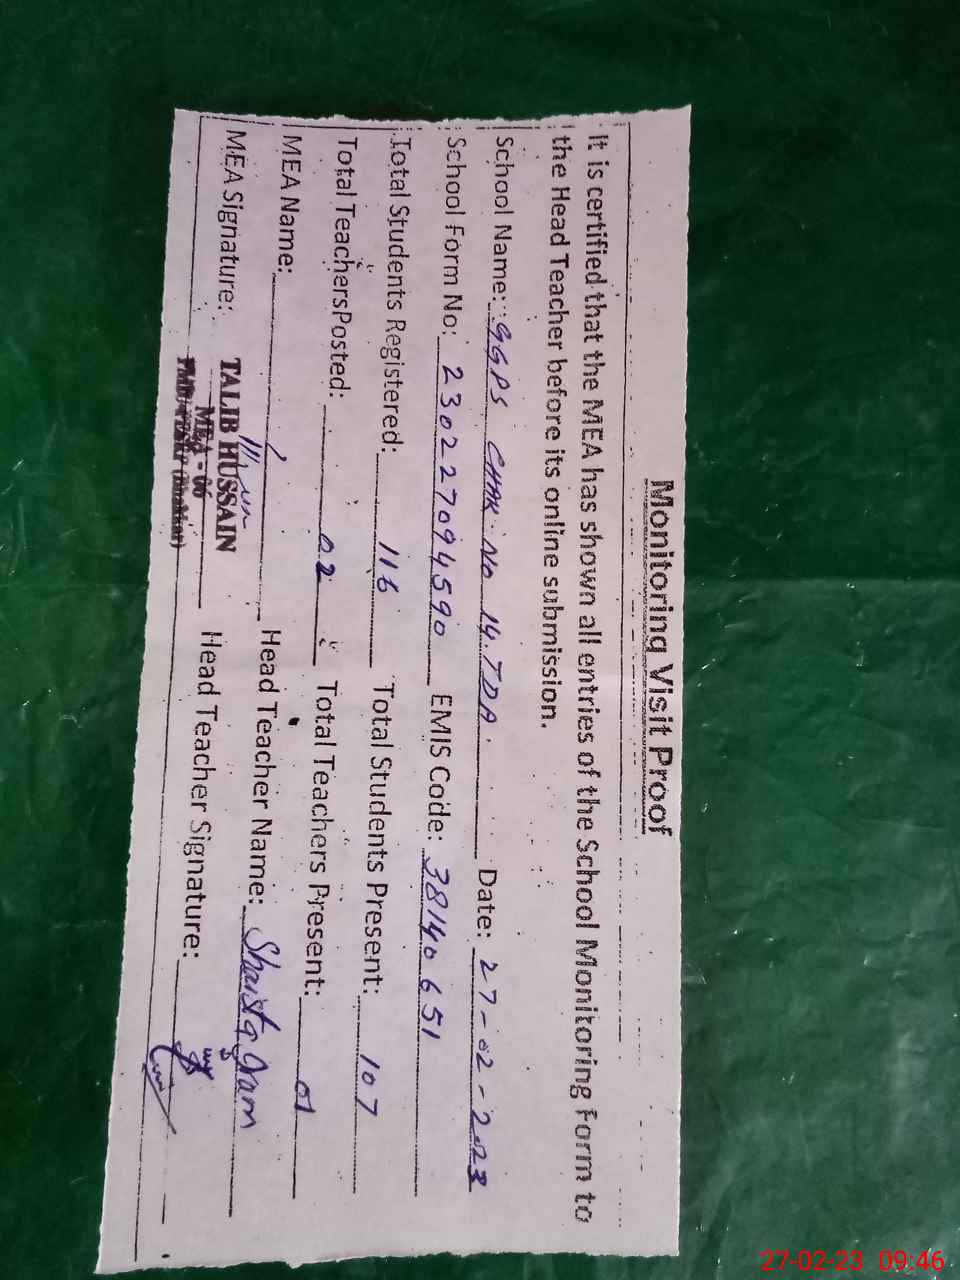 Monitoring Visit Proof
It is certified that the MEA has shown all entries of the School Monitoring Form to
the Head Teacher before its online submission.
School Name: GGPS CHAK NO 14.TDA. Date: 27-02-2023
School Form No: 230227094590 EMIS Code: 38140651
Total Students Registered: 116 Total Students Present: 107
Total TeachersPosted: 02 Total Teachers Present: 01
MEA Name: Head Teacher Name: Shaista
MEA Signature: Head Teacher Signature:
TALIB HUSSAIN
MEA - 06
27-02-23 09:46